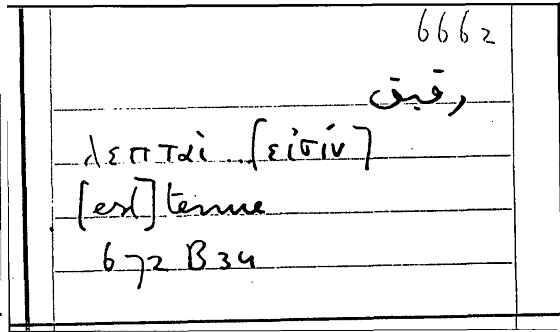 6662
رقيق
λεπταί ... [εἰσίν]
[est] tenue
672 B 34